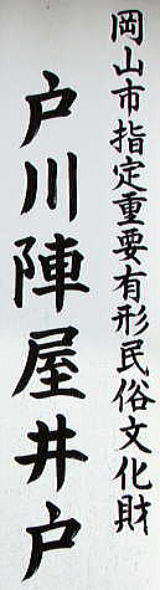 岡山市指定重要有形民俗文化財
戸川陣屋井戸